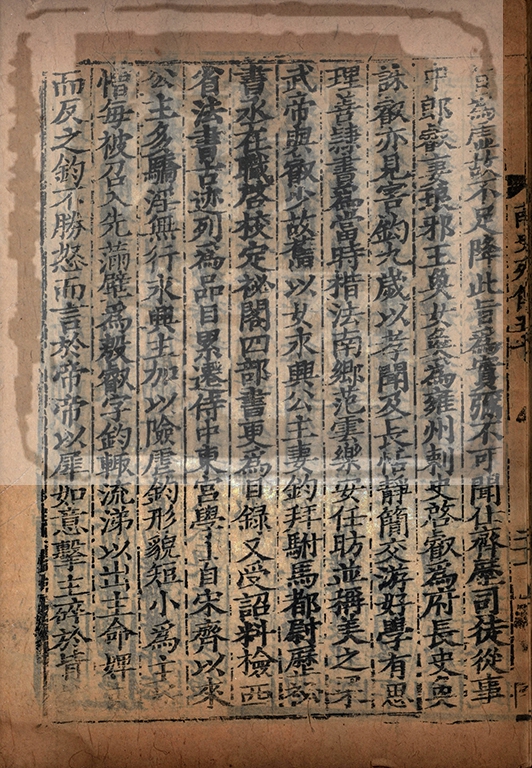 官為虛故不足降此旨為實弥不可聞仕齊歷司徒從事
中郎叡妻琅邪王奐女奐為雍州刺史啓叡為府長史奐
誅叡亦見害鈞九歲以孝聞及長恬靜簡交游好學有思
理善隷書為當時楷法南鄉范雲樂安任昉並稱美之梁
武帝與叡少故舊以女永興公主妻鈞拜駙馬都尉歷祕
書丞在職啓校定祕閣四部書更為目録又受詔料檢西
省法書古迹列為品目累遷侍中東宮學士自宋齊以來
公主多驕淫無行永興主加以險虐鈞形貌短小為主
憎每被召入先滿壁為殷叡字鈞輒流涕以出主命婢
而反之鈞不勝怒而言於帝帝以犀如意擊主碎於背